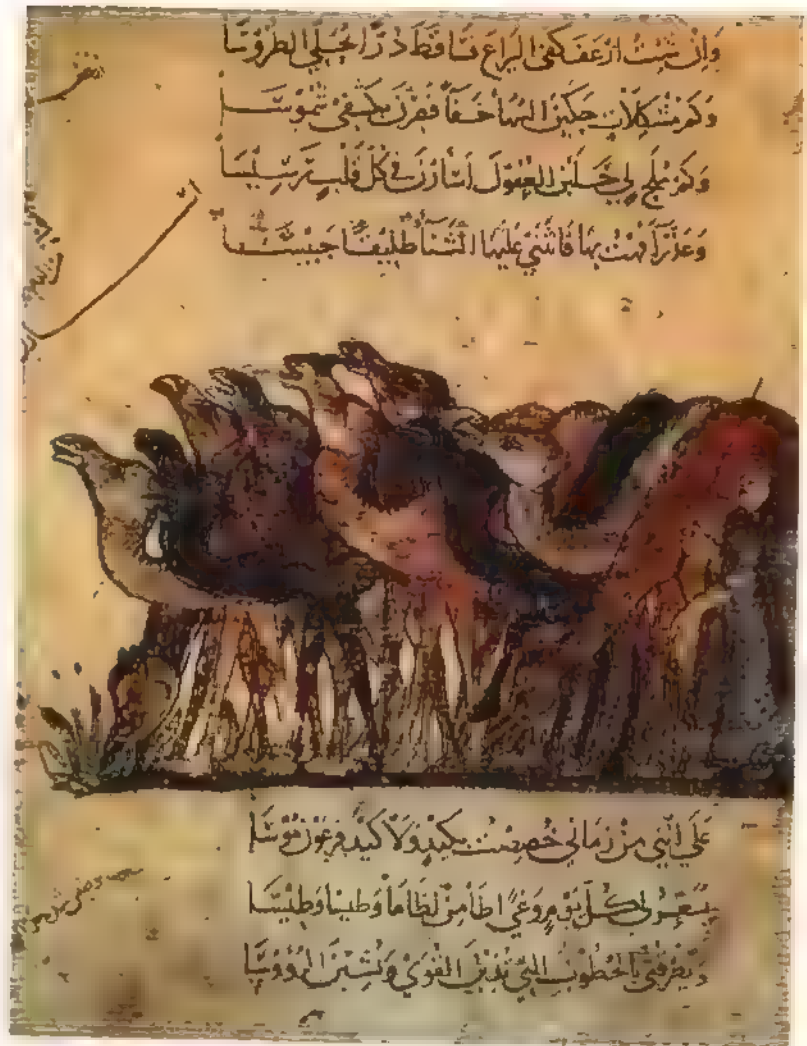 وَاِنْ شِئْتُ اَرْعَفَ كَفّى اليَراعَ فَسَاقَطَ دُرّاً يُحَلّي الطُرُوسَا
وَكَمْ مُشْكِلاتٍ حَكَيْنَ السُّهَا خَفَآءً فَصِرْنَ بِكَشْفِي شُمُوسَا
وَكَمْ مُلَحٍ لِي خَلَبْنَ العُقُولَ اَسْاَرْنَ فِي كُلِّ قَلْبٍ رَسِيْسَا
وَعَذْرَآءَ فُهْتُ بِهَا فَانْثَنَى عَلَيْهَا الثَّنَآءُ طَلِيْقًا حَبِيْسَا
عَلَى اَنَّنِي مِنْ زَمَانِي خُصِصْتُ بِكَيْدٍ وَلَا كَيْدِ فِرْعَوْنَ مُوْسَا
يُسَعِّرُ لِي كُلَّ يَوْمٍ وَغىً اَطَأُ مِنْ لَظَاهَا وَطِيْسًا وَطِيْسَا
وَيَطْرُقُنِي بِالْخُطُوْبِ الَّتِي يُذِبْنَ الْقُوَى وَيُشِبْنَ الرُؤُوْسَا